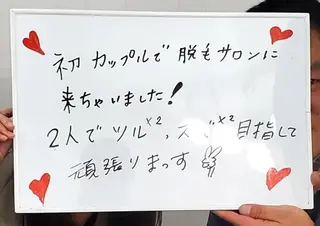 初 カップルで 脱毛サロンに
来ちゃいました!
2人で ツル×2、スベ×2 目指して
頑張りまっす